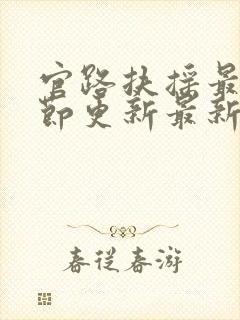 官路扶摇最
节更新最新
春从春游